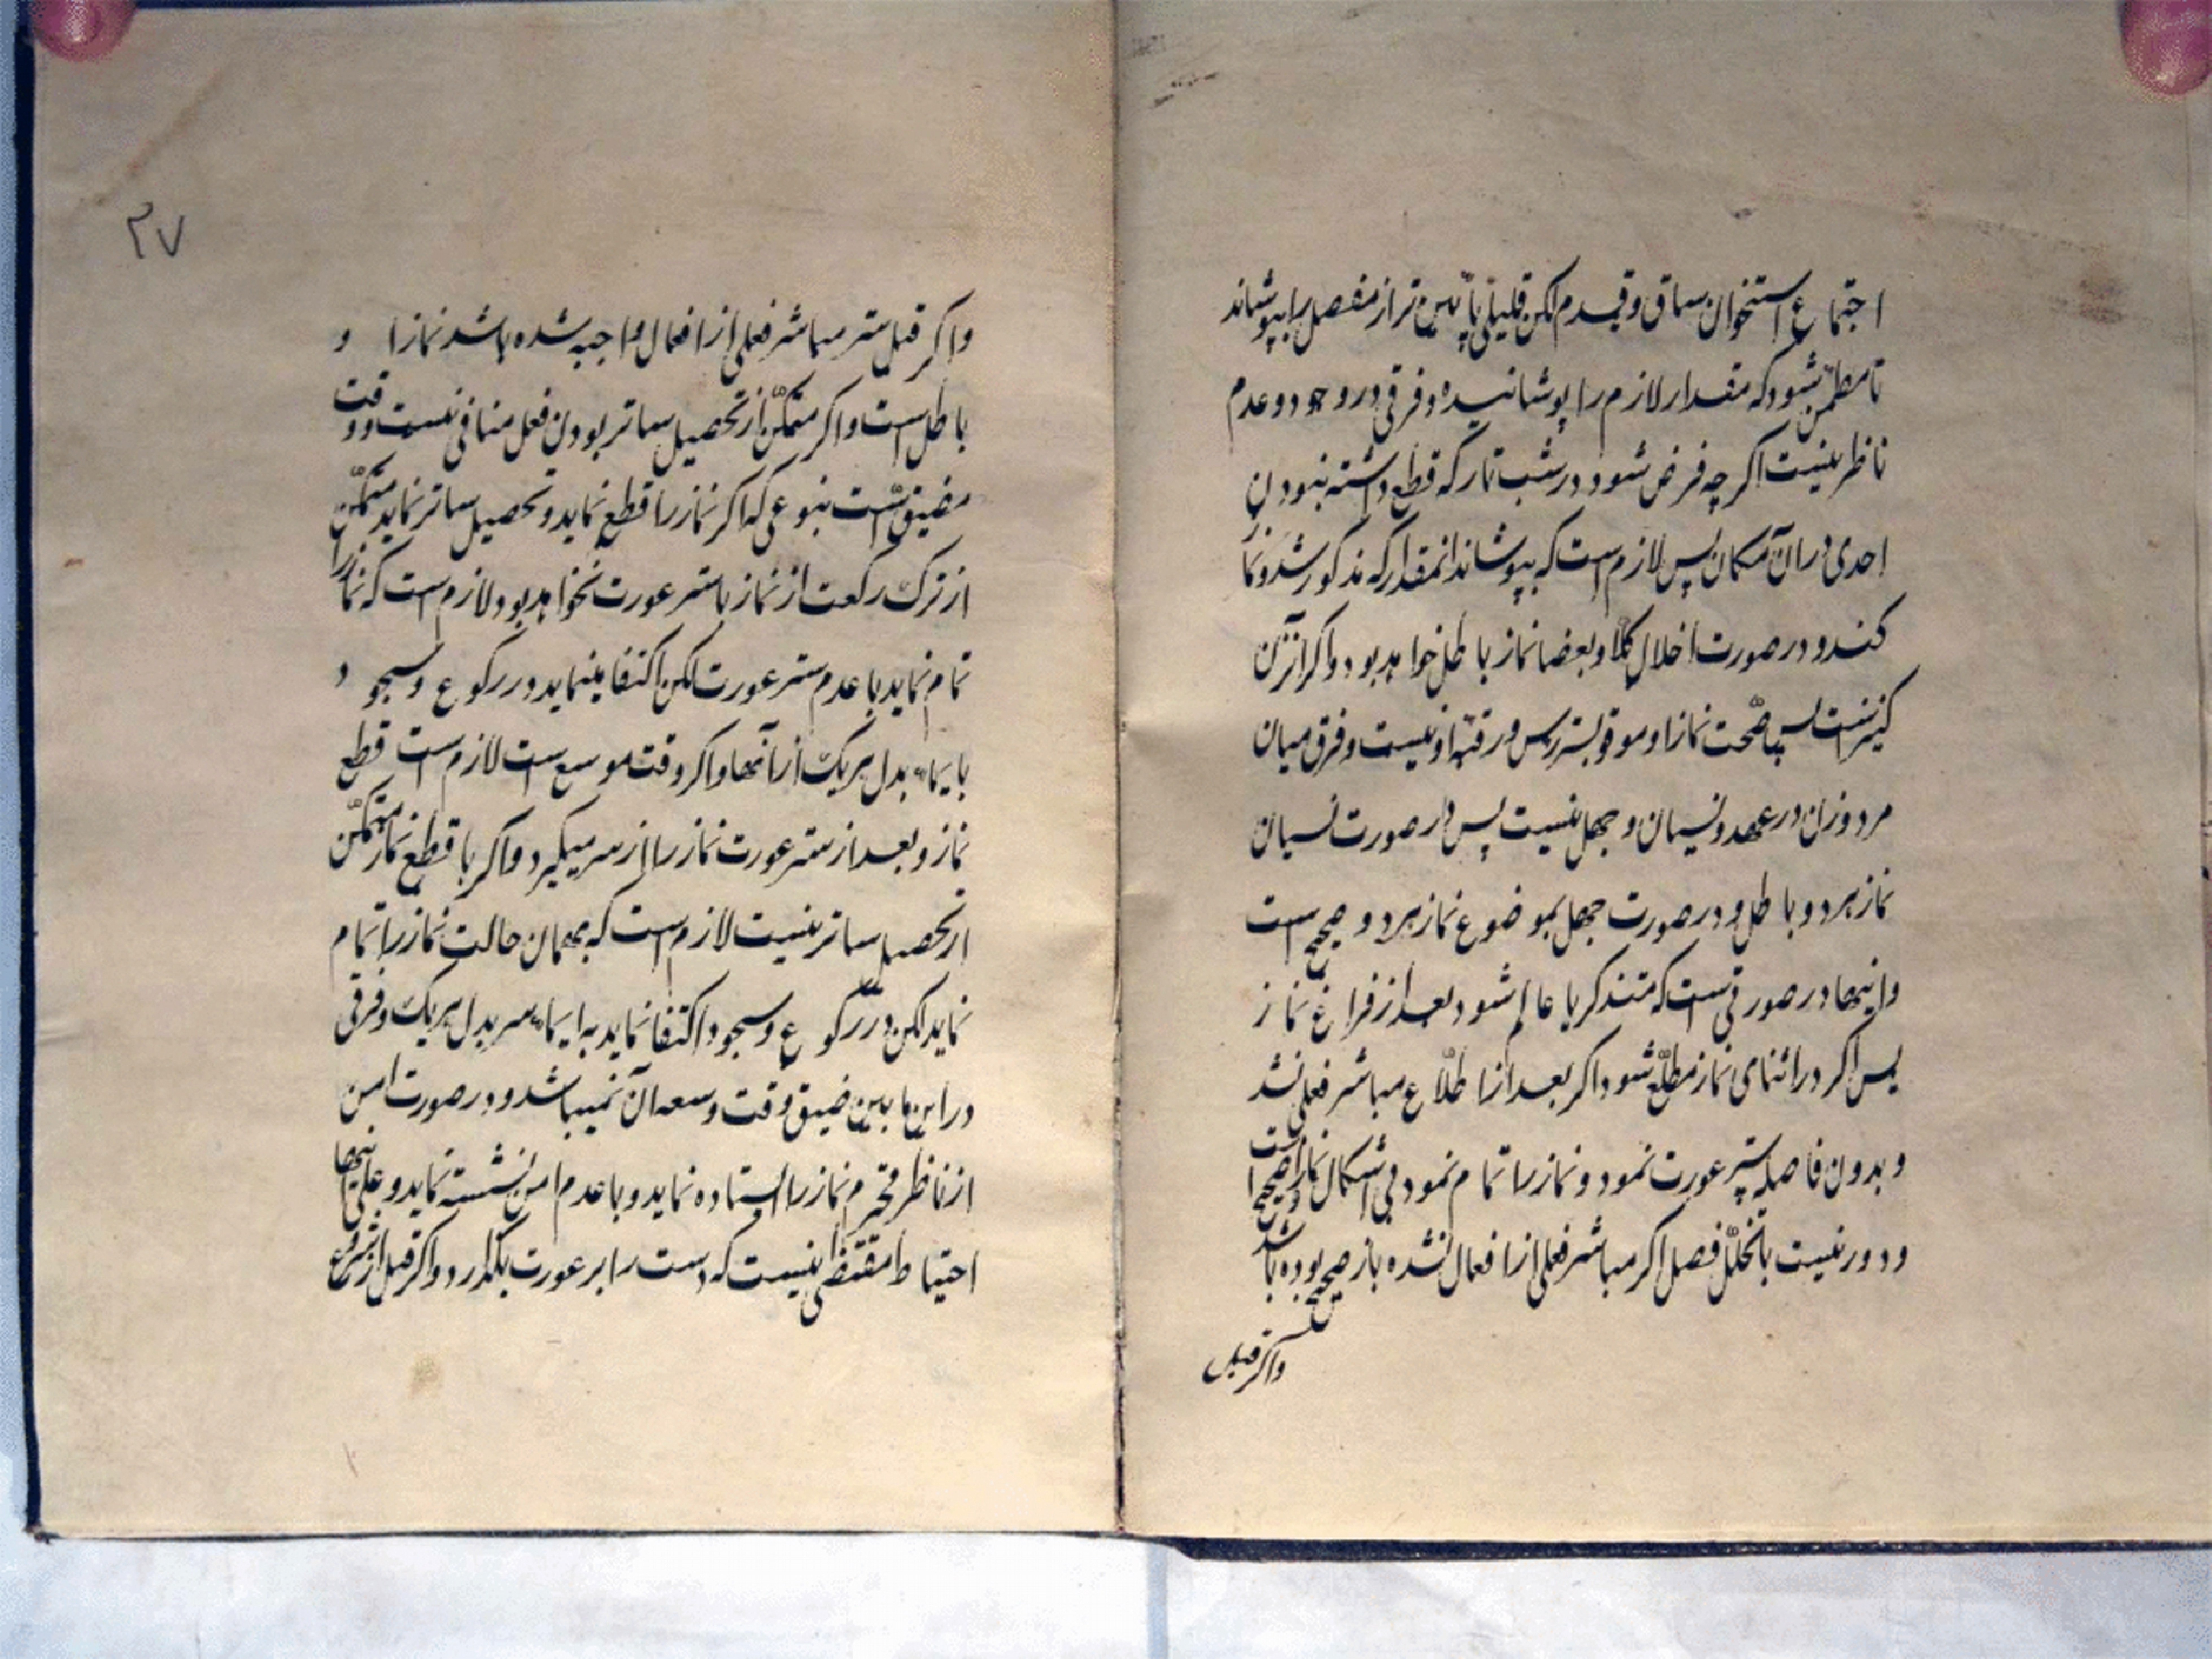 اجتماع استخوان ساق و قدم لکن قلیلی پائین تر از مفصل را بپوشاند
تا مطمئن شود که مقدار لازم را پوشانیده و فرقی در وجود و عدم
ناظر نیست اکر چه فرض شود در شب تار که قطع داشته نبودن
احدی در آن مکان پس لازم است که بپوشاند انمقدار که مذکور شد و نماز
کند و در صورت اخلال کلا و بعضا نماز باطل خواهد بود و اکر انزن
کنیز است پس صحت نماز او موقوف بستر راس و رقبه او نیست و فرق میان
مرد و زن در عمد و نسیان و جهل نیست پس در صورت نسیان
نماز هر دو باطل و در صورت جهل بموضوع نماز هر دو صحیح است
و اینها در صورتی است که متذکر یا عالم شود بعد از فراغ نماز
پس اکر در اثنای نماز مطلع شود اکر بعد از اطلاع مباشر فعلی نشد
و بدون فاصله ستر عورت نمود و نماز را تمام نمود بی اشکال نماز صحیح است
و دور نیست با تخلل فصل اکر مباشر فعلی از افعال نشده باز صحیح بوده باشد
و اکر قبل
۲۷
و اکر قبل ستر مباشر فعلی از افعال واجبه شده باشد نماز او
باطل است و اکر متمکن از تحصیل ساتر بودن فعل منافی نیست و وقت
مضیق است بنوعی که اکر نماز را قطع نماید و تحصیل ساتر نماید متمکن
از ترک رکعت از نماز با ستر عورت نخواهد بود لازم است که نماز را
تمام نماید با عدم ستر عورت لکن اکتفا مینماید در رکوع و سجود
بایماء بدل هر یک از آنها و اکر وقت موسع است لازم است قطع
نماز و بعد از ستر عورت نماز را از سر میکیرد و اکر با قطع نماز متمکن
از تحصیل ساتر نیست لازم است که بهمان حالت نماز را تمام
نماید لکن در رکوع و سجود اکتفا نماید به ایماء سر بدل هر یک و فرقی
در این ما بین ضیق وقت و سعه آن نمیباشد و در صورت امن
از ناظر محترم نماز را ایستاده نماید و با عدم امن نشسته نماید و علی ایها
احتیاط مقتضی نیست که دست را بر عورت بکذارد و اکر قبل از شروع